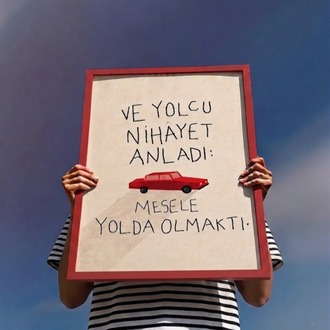 VE YOLCU
NİHÂYET
ANLADI:
MESELE
YOLDA OLMAKTI.